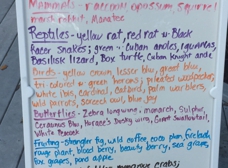 Mammals - raccoon opossum squirrel
marsh rabbit, Manatee
Reptiles - yellow rat, red rat & Black
Racer snakes; green & Cuban anoles, iguanas,
Basilisk lizard, Box turtle, Cuban knight anole
Birds - yellow crown lesser blu, great blue,
tri colored & green herons; pileated woodpecker,
white ibis, cardinal, catbird, palm warblers,
wild parrots, screech owl, blue jay
Butterflies - Zebra longwing, monarch, Sulphur,
Ceraunus Blue, Horace's Dusky wing, Giant Swallowtail,
White Peacock
Fruiting - strangler fig, wild coffee, coco plum, firebush,
rouge plant, blood berry, beauty berry, sea grape,
fox grapes, pond apple
mangrove crabs,